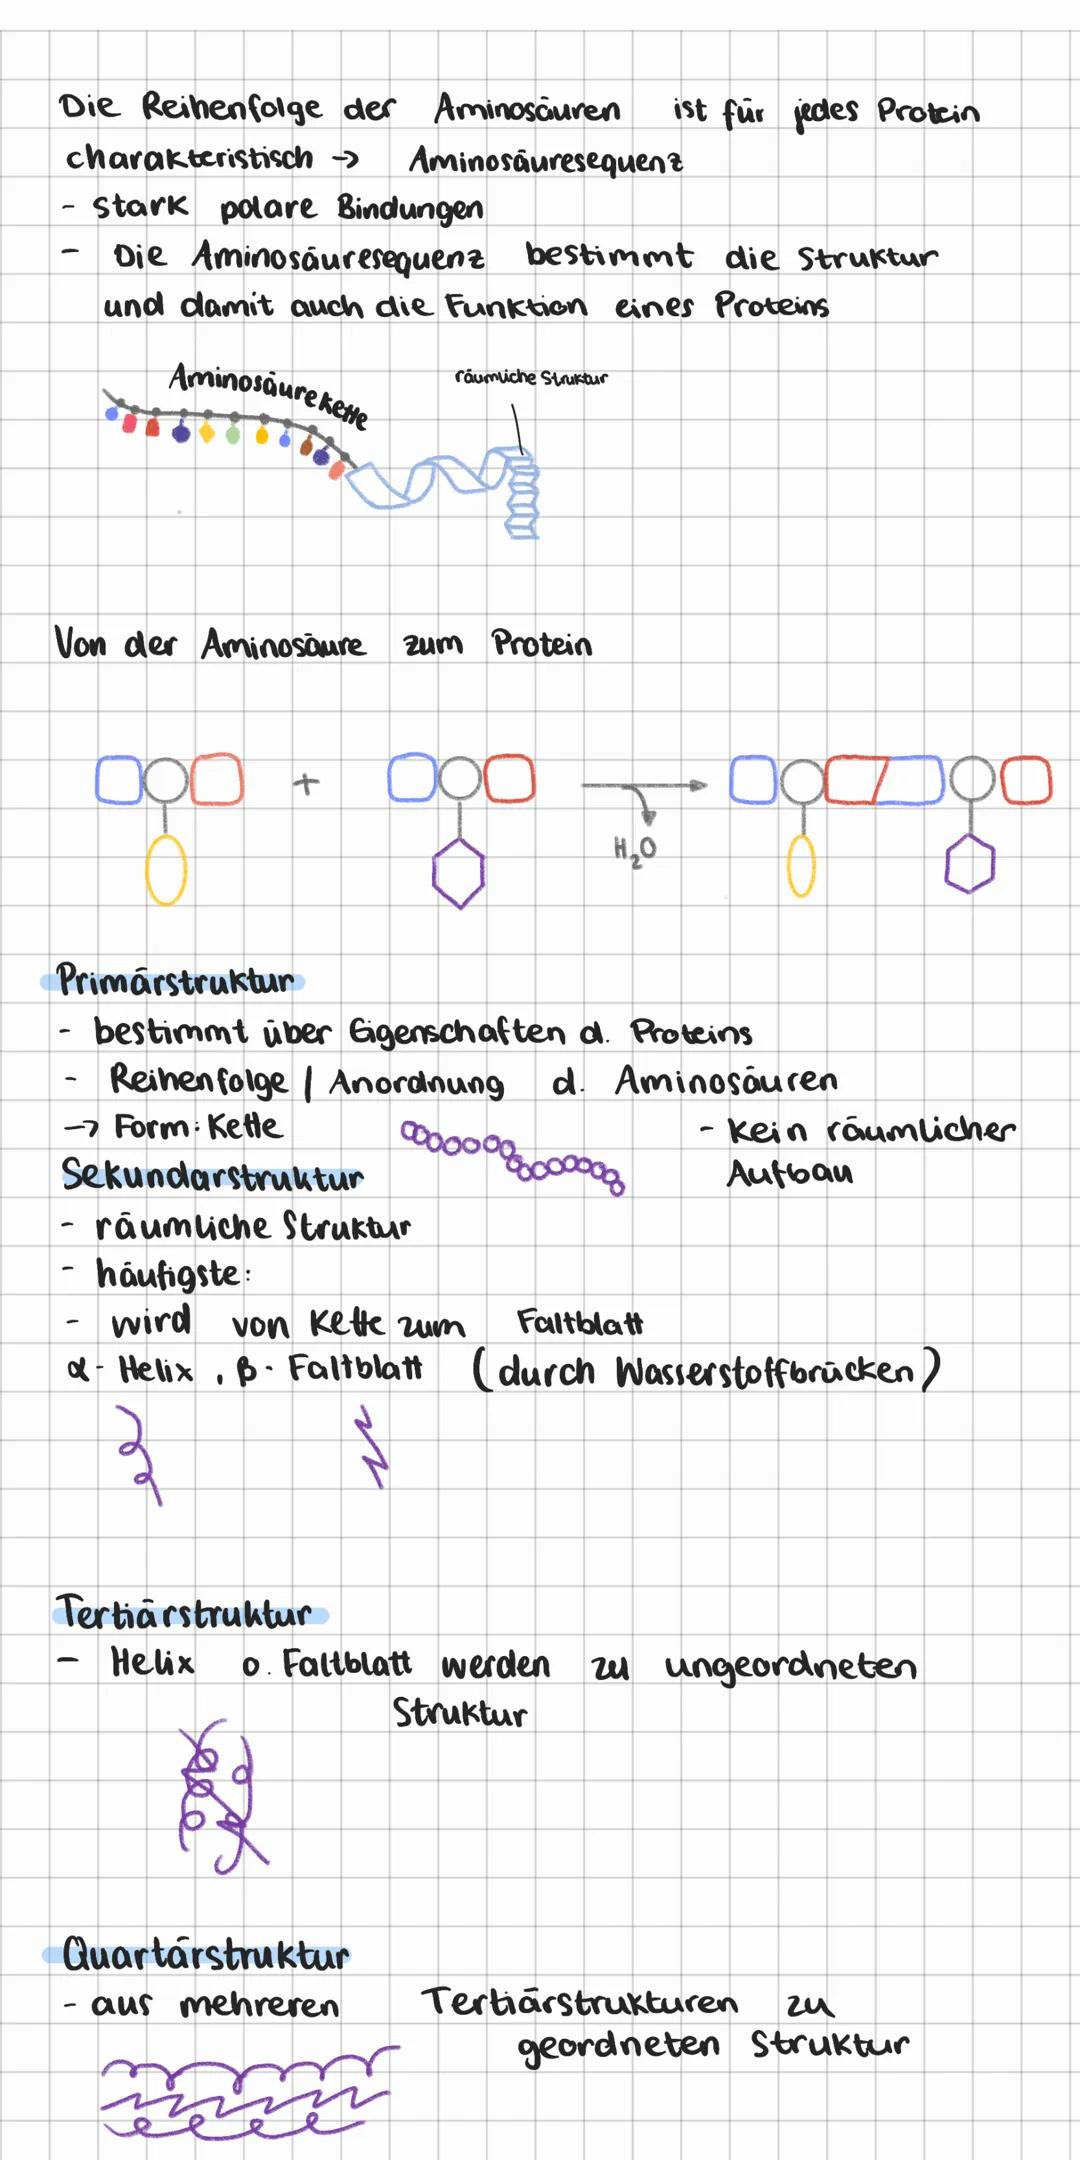 Die Reihenfolge der Aminosäuren ist für jedes Protein
charakteristisch → Aminosäuresequenz
- stark polare Bindungen
- Die Aminosäuresequenz bestimmt die Struktur
und damit auch die Funktion eines Proteins
Aminosäurekette
räumliche Struktur
Von der Aminosäure zum Protein
+
H₂O
Primärstruktur
- bestimmt über Eigenschaften d. Proteins
- Reihenfolge / Anordnung d. Aminosäuren
→ Form: Kette
- kein räumlicher
Aufbau
Sekundarstruktur
- räumliche Struktur
- häufigste:
- wird von Kette zum Faltblatt
α- Helix, β- Faltblatt (durch Wasserstoffbrücken)
Tertiärstruktur
- Helix o. Faltblatt werden zu ungeordneten
Struktur
Quartärstruktur
- aus mehreren Tertiärstrukturen zu
geordneten Struktur